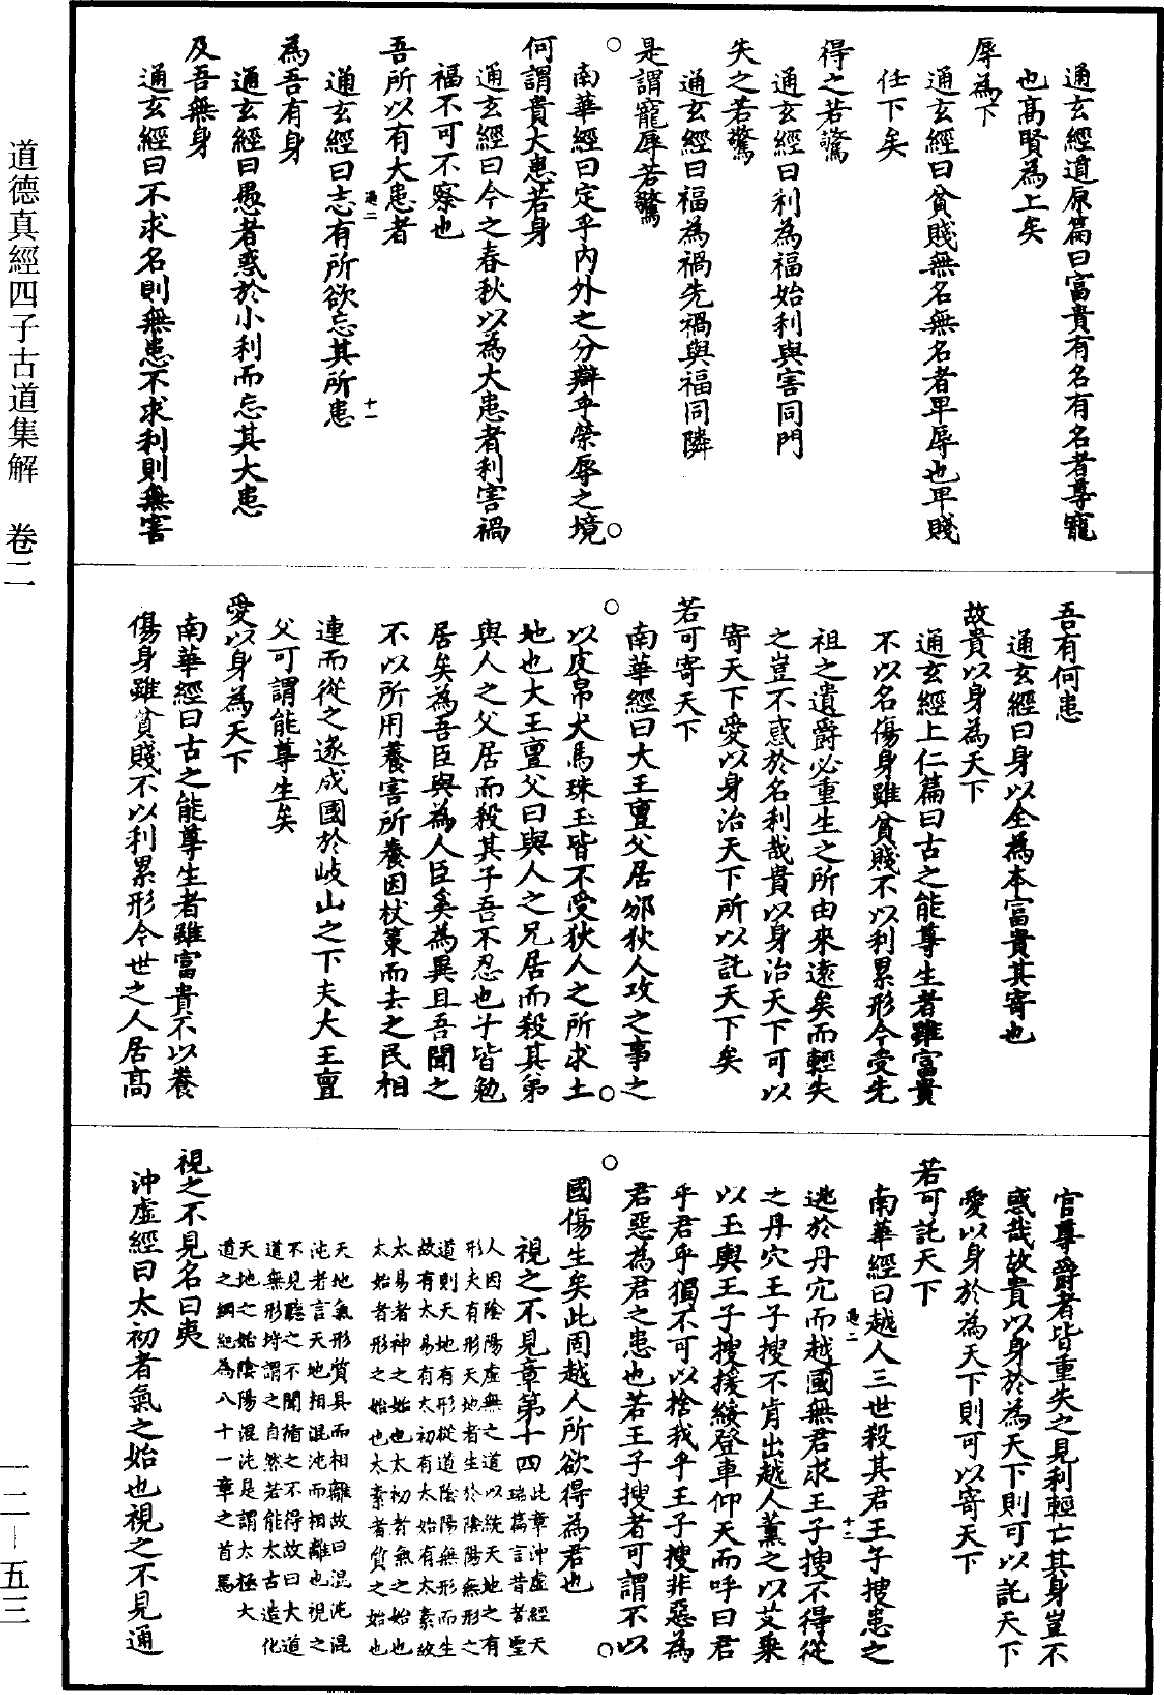 道德真經四子古道集解　卷二
一二—五三
通玄經道原篇曰富貴有名有名者尊寵
也高賢為上矣
辱為下
通玄經曰貧賤無名無名者卑辱也卑賤
任下矣
得之若驚
通玄經曰利為福始利與害同門
失之若驚
通玄經曰福為禍先禍與福同隣
是謂寵辱若驚
南華經曰定乎內外之分辯乎榮辱之境
何謂貴大患若身
通玄經曰今之春秋以為大患者利害禍
福不可不察也
吾所以有大患者
過二　十一
通玄經曰志有所欲忘其所患
為吾有身
通玄經曰愚者惑於小利而忘其大患
及吾無身
通玄經曰不求名則無患不求利則無害
吾有何患
通玄經曰身以全為本富貴其寄也
故貴以身為天下
通玄經上仁篇曰古之能尊生者雖富貴
不以名傷身雖貧賤不以利累形今受先
祖之遺爵必重生之所由來遠矣而輕失
之豈不惑於名利哉貴以身治天下可以
寄天下愛以身治天下所以託天下矣
若可寄天下
南華經曰大王亶父居邠狄人攻之事之
以皮帛犬馬珠玉皆不受狄人之所求土
地也大王亶父曰與人之兄居而殺其弟
與人之父居而殺其子吾不忍也子皆勉
居矣為吾臣與為人臣奚為異且吾聞之
不以所用養害所養因杖策而去之民相
連而從之遂成國於岐山之下夫大王亶
父可謂能尊生矣
愛以身為天下
南華經曰古之能尊生者雖富貴不以養
傷身雖貧賤不以利累形今世之人居高
官尊爵者皆重失之見利輕亡其身豈不
惑哉故貴以身於為天下則可以託天下
愛以身於為天下則可以寄天下
若可託天下
過二　十二
南華經曰越人三世殺其君王子搜患之
逃於丹穴而越國無君求王子搜不得從
之丹穴王子搜不肯出越人薰之以艾乘
以玉輿王子搜援綏登車仰天而呼曰君
乎君乎獨不可以捨我乎王子搜非惡為
君惡為君之患也若王子搜者可謂不以
國傷生矣此固越人所欲得為君也
視之不見章第十四此章沖虛經天
瑞篇言昔者聖
人因陰陽虛無之道以統天地之有
形夫有形天地者生於陰陽無形之
道則天地有形從道陰陽無形而生
故有太易有太初有太始有太素故
太易者神之始也太初者氣之始也
太始者形之始也太素者質之始也
天地氣形質具而相離故曰混沌混
沌者言天地相混沌而相離也視之
不見聽之不聞循之不得故曰大道
道無形埒謂之自然若能太古造化
天地之始陰陽混沌是謂太極大
道之綱紀為八十一章之首焉
視之不見名曰夷
沖虛經曰太初者氣之始也視之不見通